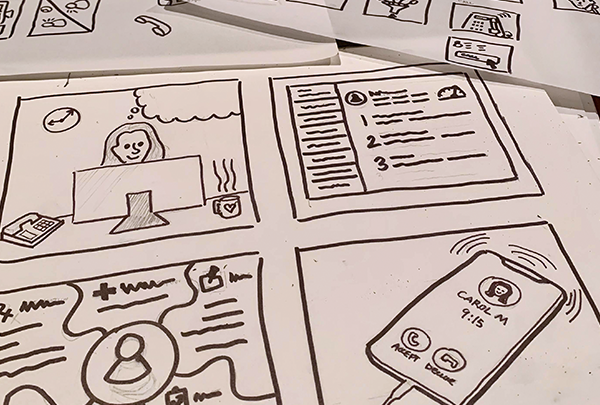 1
2
3
CAROL M
9:15
ACCEPT DECLINE